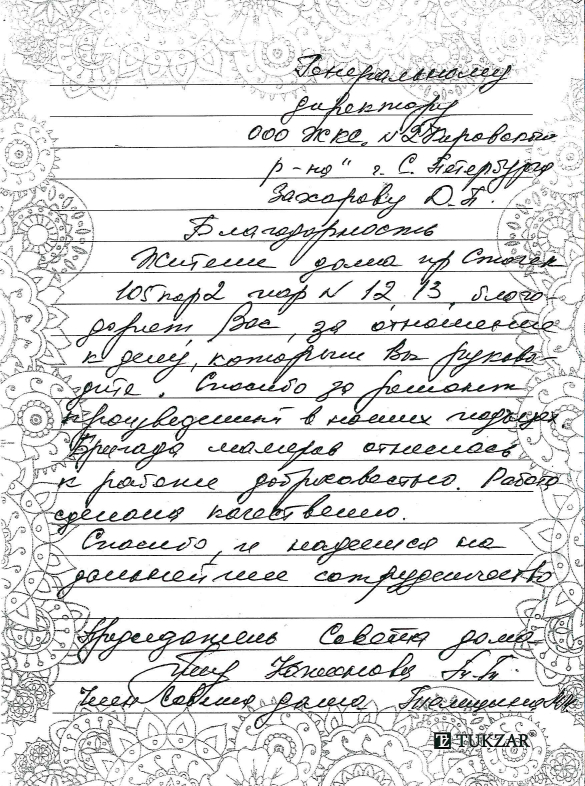 Генеральному
директору
ООО ЖКС. №2 Кировского
р-на" г. С. Петербурга
Захарову Д.П.
Благодарность
Жители дома пр Стачек
105 кор 2 пар N 12, 13, благо-
дарят, Вас, за отношение
к делу, которым Вы руково-
дите. Спасибо за ремонт
произведенный в наших подъездах.
Бригада маляров отнеслась
к работе добросовестно. Работа
сделана качественно.
Спасибо, и надеемся на
дальнейшее сотрудничество
Председатель Совета дома
Член Совета дома
TUKZAR